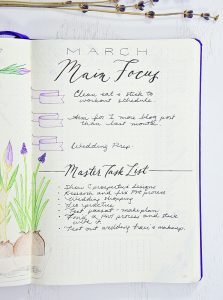 MARCH
Main Focus
Clean eat & stick to
workout schedule
Aim for 1 more blog post
than last month
Wedding Prep.
Master Task List
- Show 2 prospective designs
- Research and fix process
- Wedding shopping
- practice
- Test parfait - make plan
- process and stick
with it
- Test out wedding hair & makeup.